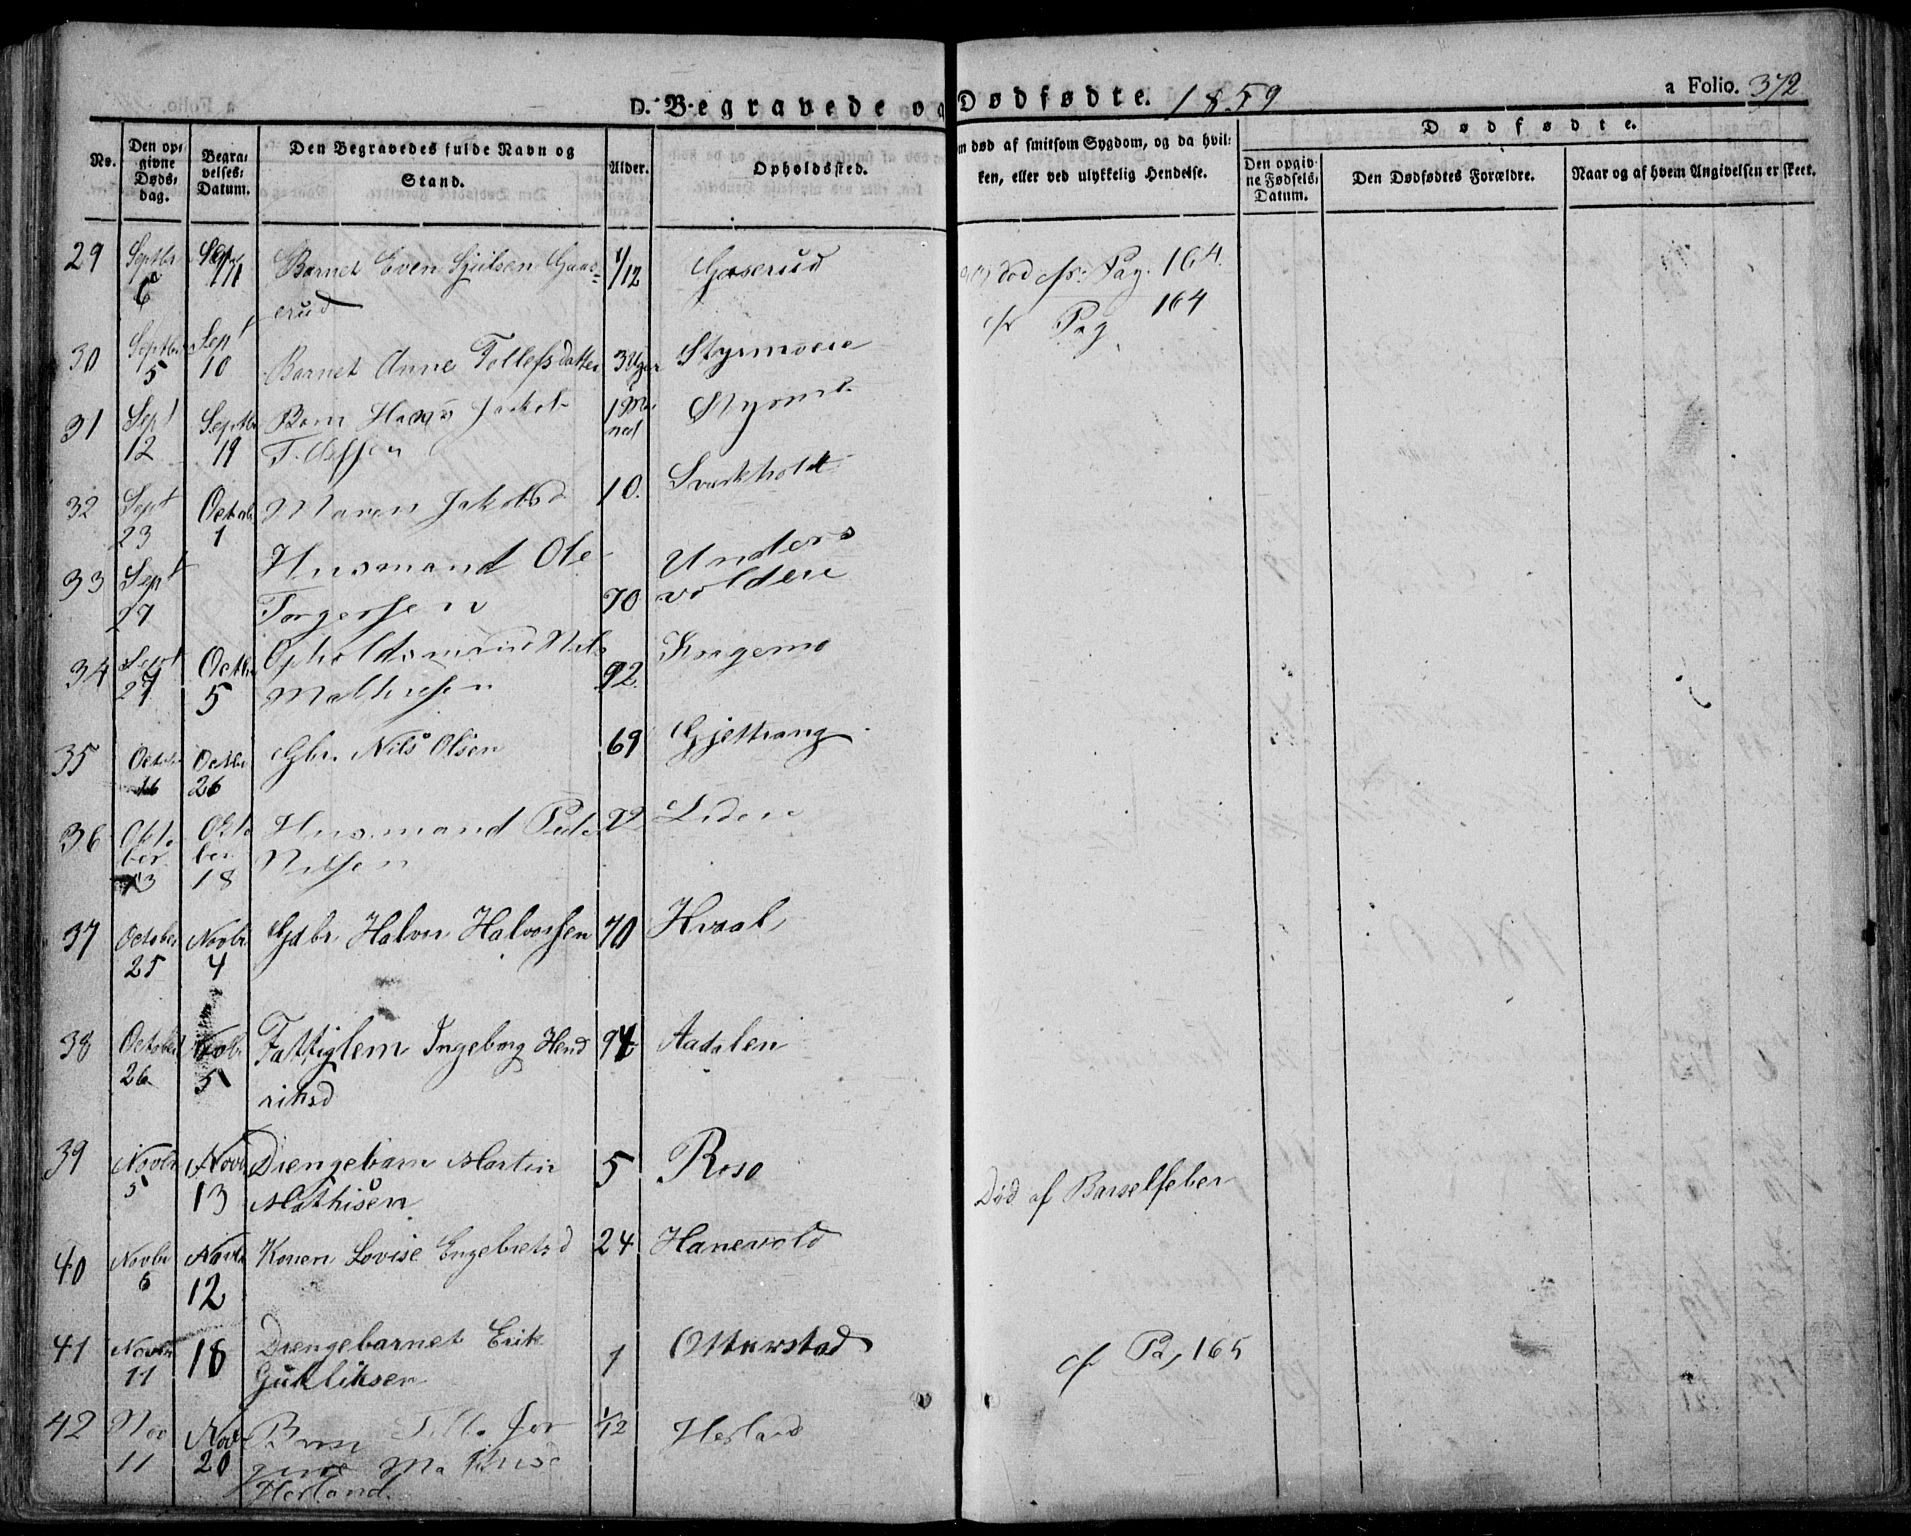 D. Begravede o
Dødfødte. 1859
a Folio. 372
No.
Den op-
givne
Døds-
dag.
Begra-
velses-
Datum.
Den Begravedes fulde Navn og
Stand.
Alder.
Opholdssted.
m død af smitsom Sygdom, og da hvil-
ken, eller ved ulykkelig Hendelse.
Dødfødte.
Den opgiv-
ne Fødsels-
Datum.
Den Dødfødtes Forældre.
Naar og af hvem Angivelsen er skeet.
29 Septbr 6 11 Barnet Even 1/12 Gaserud
erud
død cfr. Pag. 164.
cfr Pag 164
30 Septbr 5 Sept 10 Barnet Anne Tollefsdatter 3 Uger
31 Sept 12 Septbr 19 Barn Hans Jakob 1 Maa
ned
32 Sept 23 Octobr 1 Maren Jakobsd 10.
33 Sept 27 Husmand Ole
Torgersen 70
34 Sept 27 Octbr 5 Opholdsmand Nils
Mathisen 92
35 Octbr 16 Octbr 26 Gbr. Nils Olsen 69 Gjettrang
36 Okto
ber 13 Okto
ber 18 Husmand Peder
Nilsen
37 October 25 Novbr 4 Gdbr. Halvor Halvorsen 70 Kraal
38 October 26 Novbr 5 Fattiglem Ingeborg Hend
riksd 94 Aadalen
39 Novbr 5 Novbr 13 Drengebarn Martin
Mathisen 5 Rosa
Død af Barselfeber
40 Novbr 6 Novbr 12 Konen Lovise Engebretsd 24 Hanevold
41 Novbr 11 18 Drengebarnet Erik
Gulliksen 1 Otterstad
cf Pa, 165
42 Nov 11 Novbr 20 Barn 1/12 Herland
Herland.